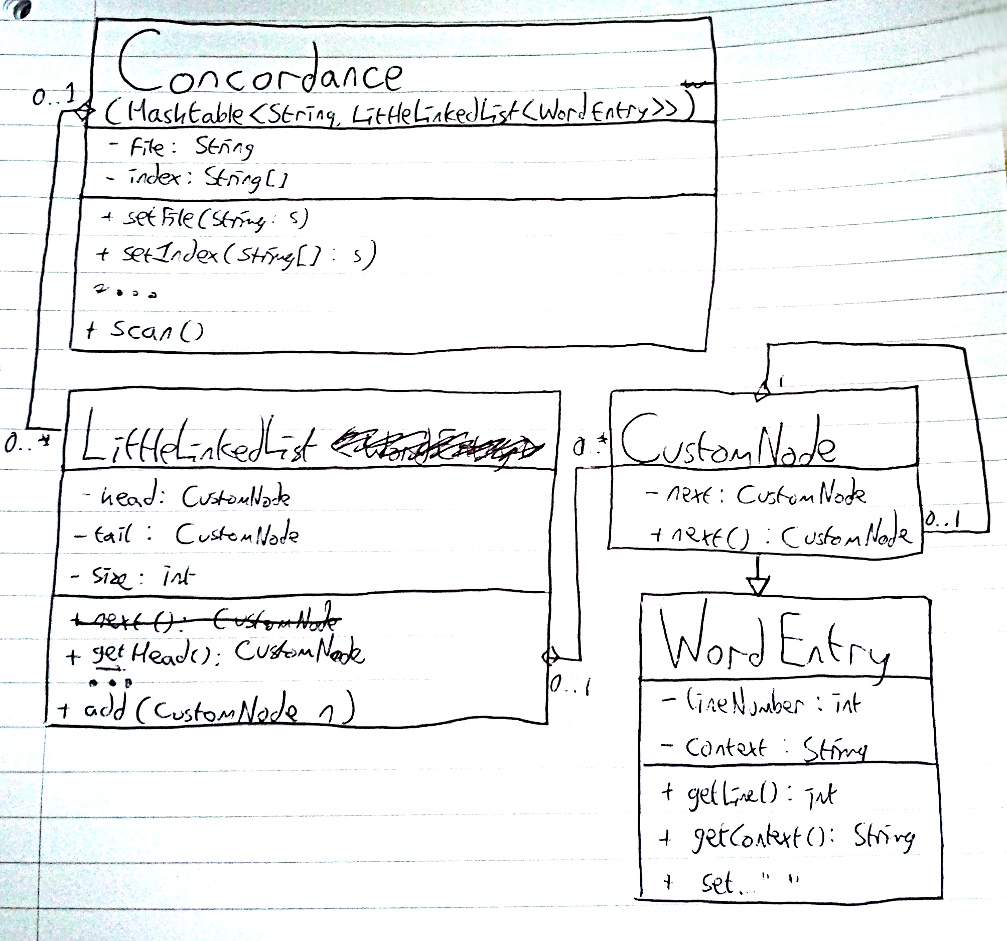 Concordance
0..1
(Hashtable<String, LittleLinkedList<WordEntry>>)
- file: String
- index: String[]
+ setFile(String: s)
+ setIndex(String[] : s)
....
+ scan()
0..*
LittleLinkedList
- head: CustomNode
- tail: CustomNode
- size: int
+ next(): CustomNode
+ getHead(): CustomNode
...
+ add(CustomNode n)
0..1
1
0..*
CustomNode
- next: CustomNode
+ next(): CustomNode
0..1
WordEntry
- lineNumber: int
- context: String
+ getLine(): int
+ getContext(): String
+ set... " "